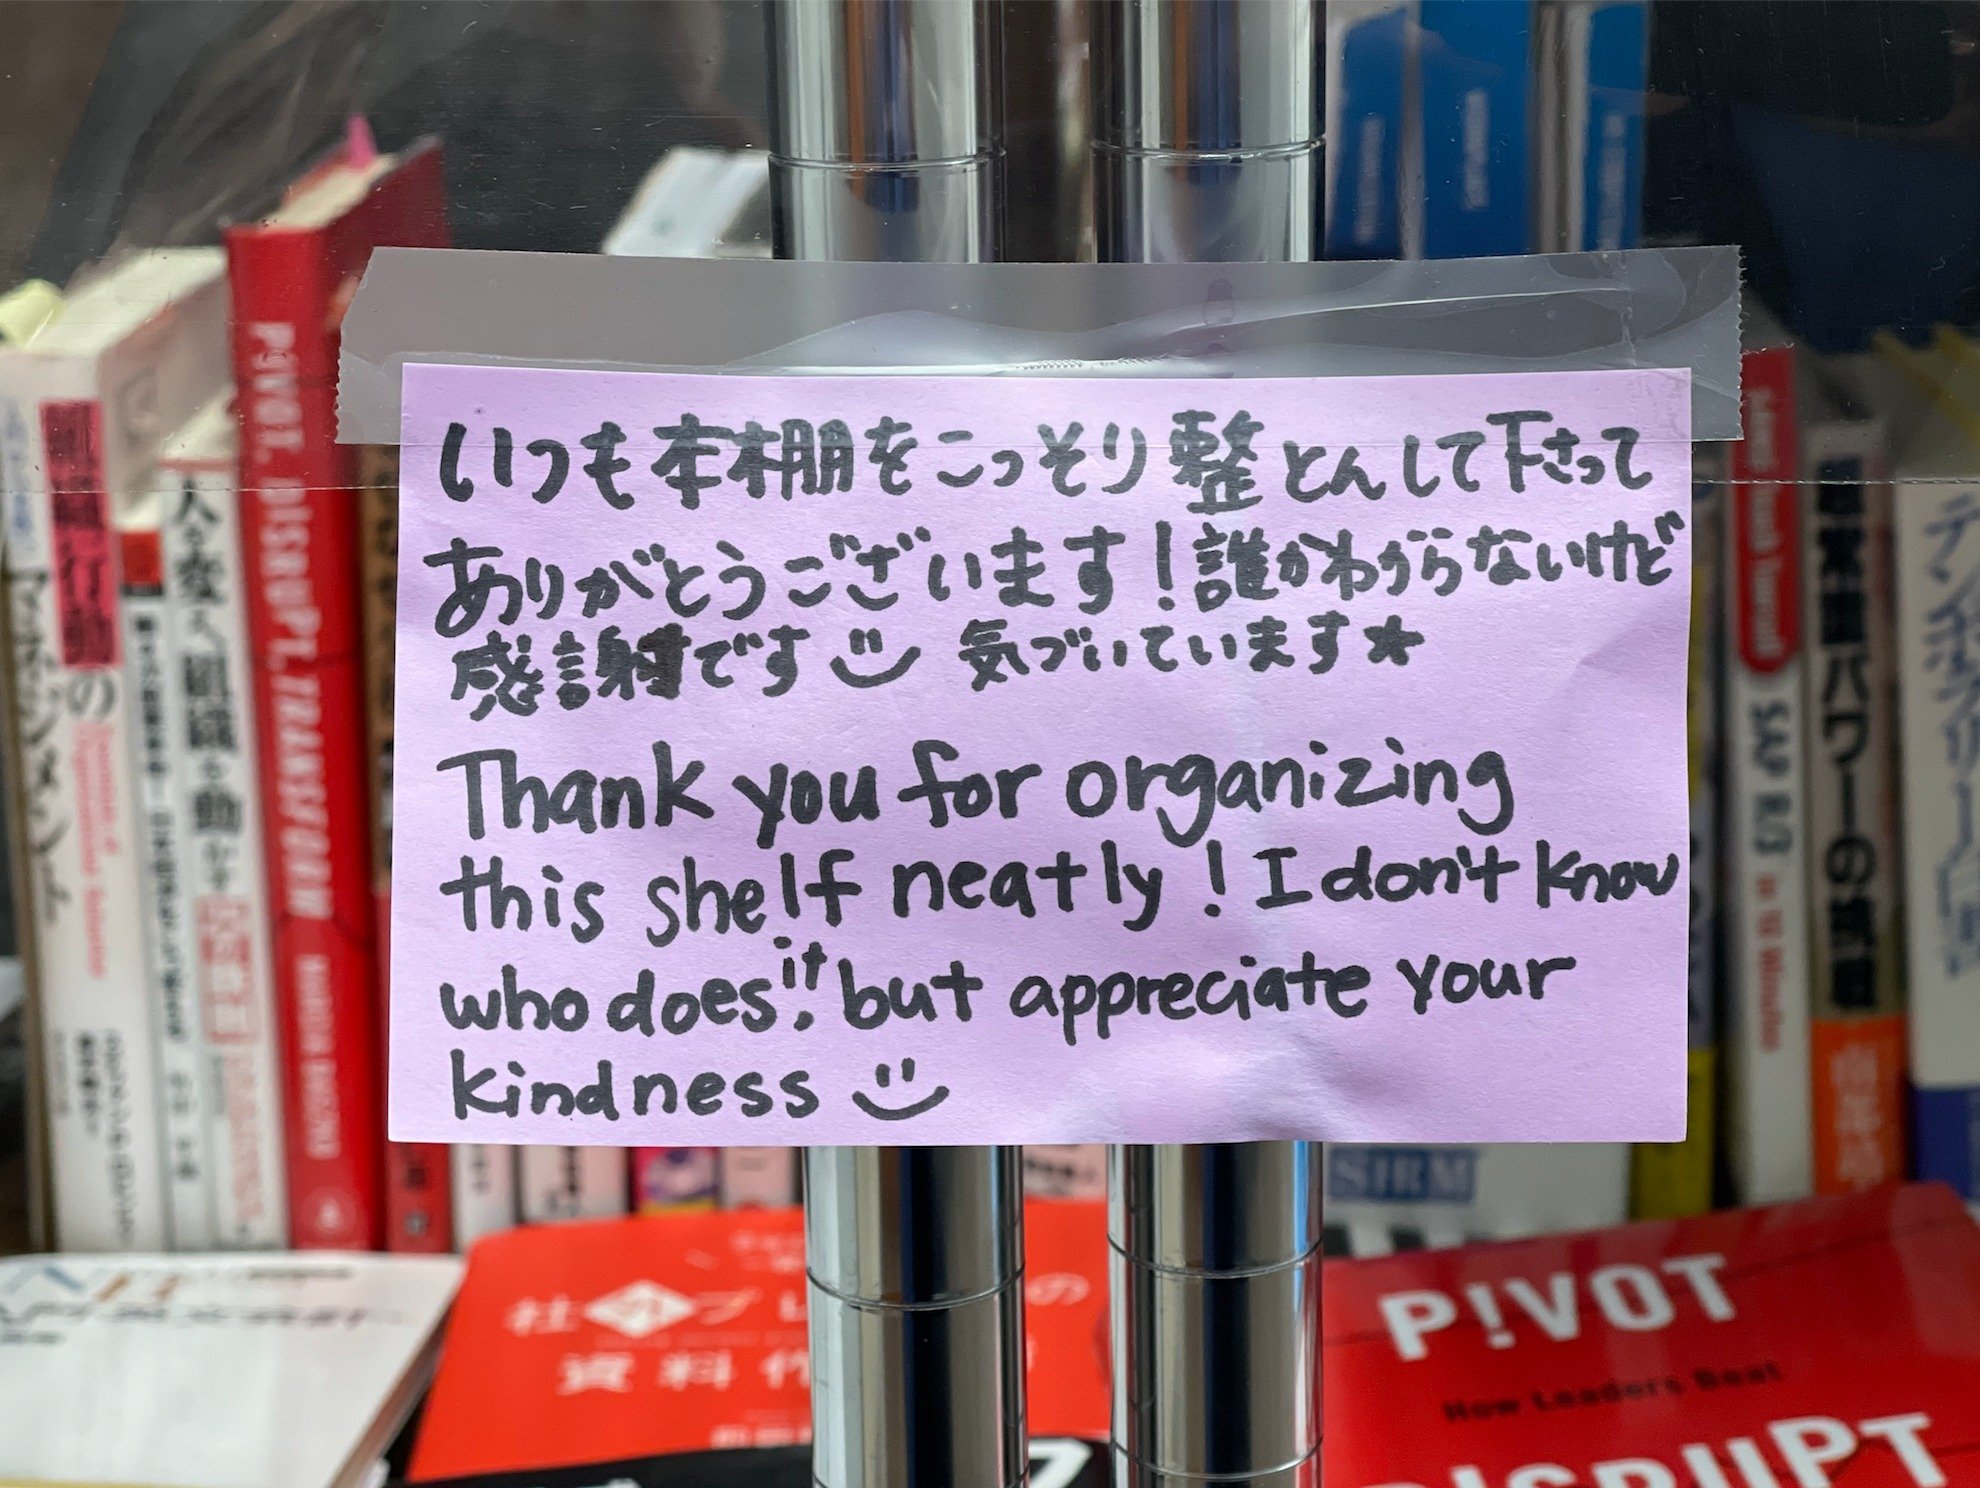 いつも本棚をこっそり整とんして下さって
ありがとうございます！誰かわからないけど
感謝です 気づいています★
Thank you for organizing
this shelf neatly! I don't know
who does it, but appreciate your
kindness
PIVOT. DISRUPT. TRANSFORM
組織行動
のマネジメント
人を変え、組織を動かす
SAP R/3
SIRM
資料作
P!VOT
How Leaders Beat
DISRUPT